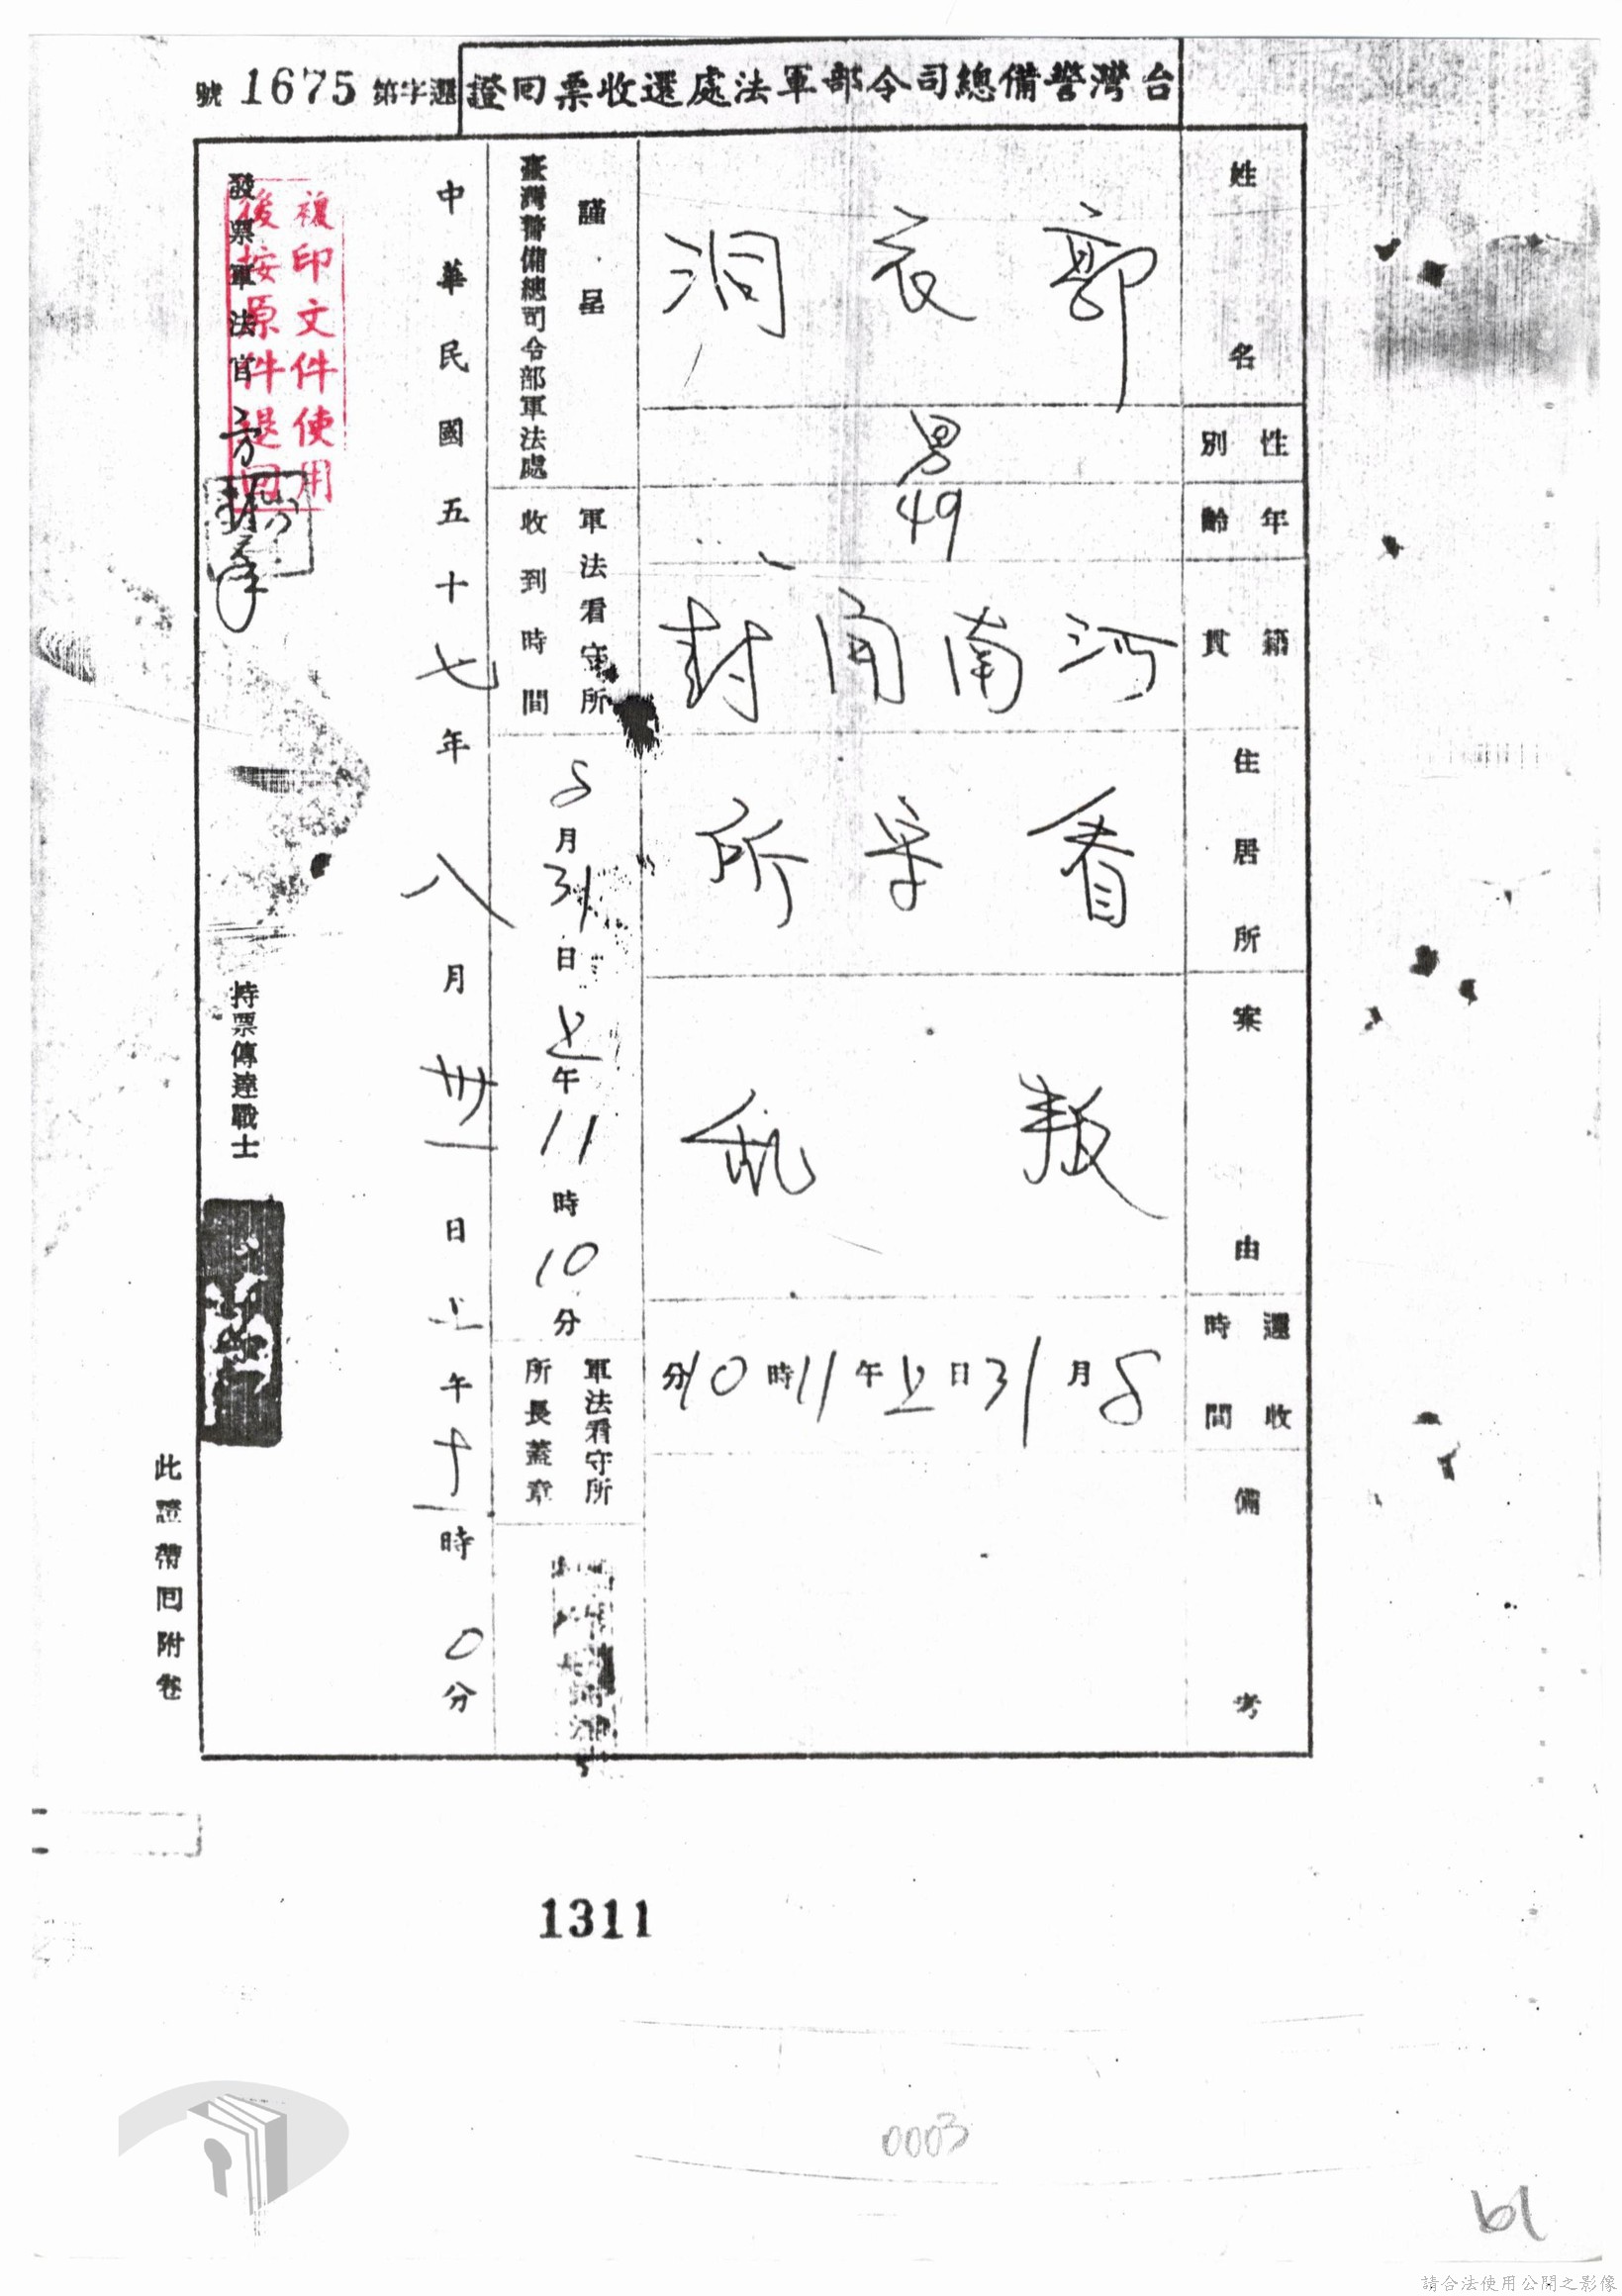 台灣警備總司令部軍法處還收票回證
還字第1675號
姓名
郭衣洞
性別
男
年齡
49
籍貫
河南開封
住居所
看守所
案由
叛乱
還收時間
8月31日上午11時10分
備考
謹呈
臺灣警備總司令部軍法處
軍法看守所收到時間
8月31日上午11時10分
軍法看守所所長蓋章
中華民國五十七年八月卅一日上午十一時0分
發票軍法官 方
持票傳達戰士
複印文件使用
後按原件退回
此證帶回附卷
1311
0003
61
請合法使用公開之影像